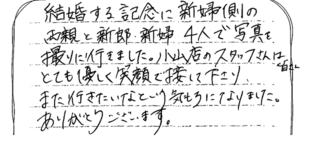 結婚する記念に新婦側の
両親と新郎 新婦 4人で写真を
撮りに行きました。小山店のスタッフさんは皆さん
とても優しく笑顔で接して下さり
また行きたいなという気もちになりました。
ありがとうございます。